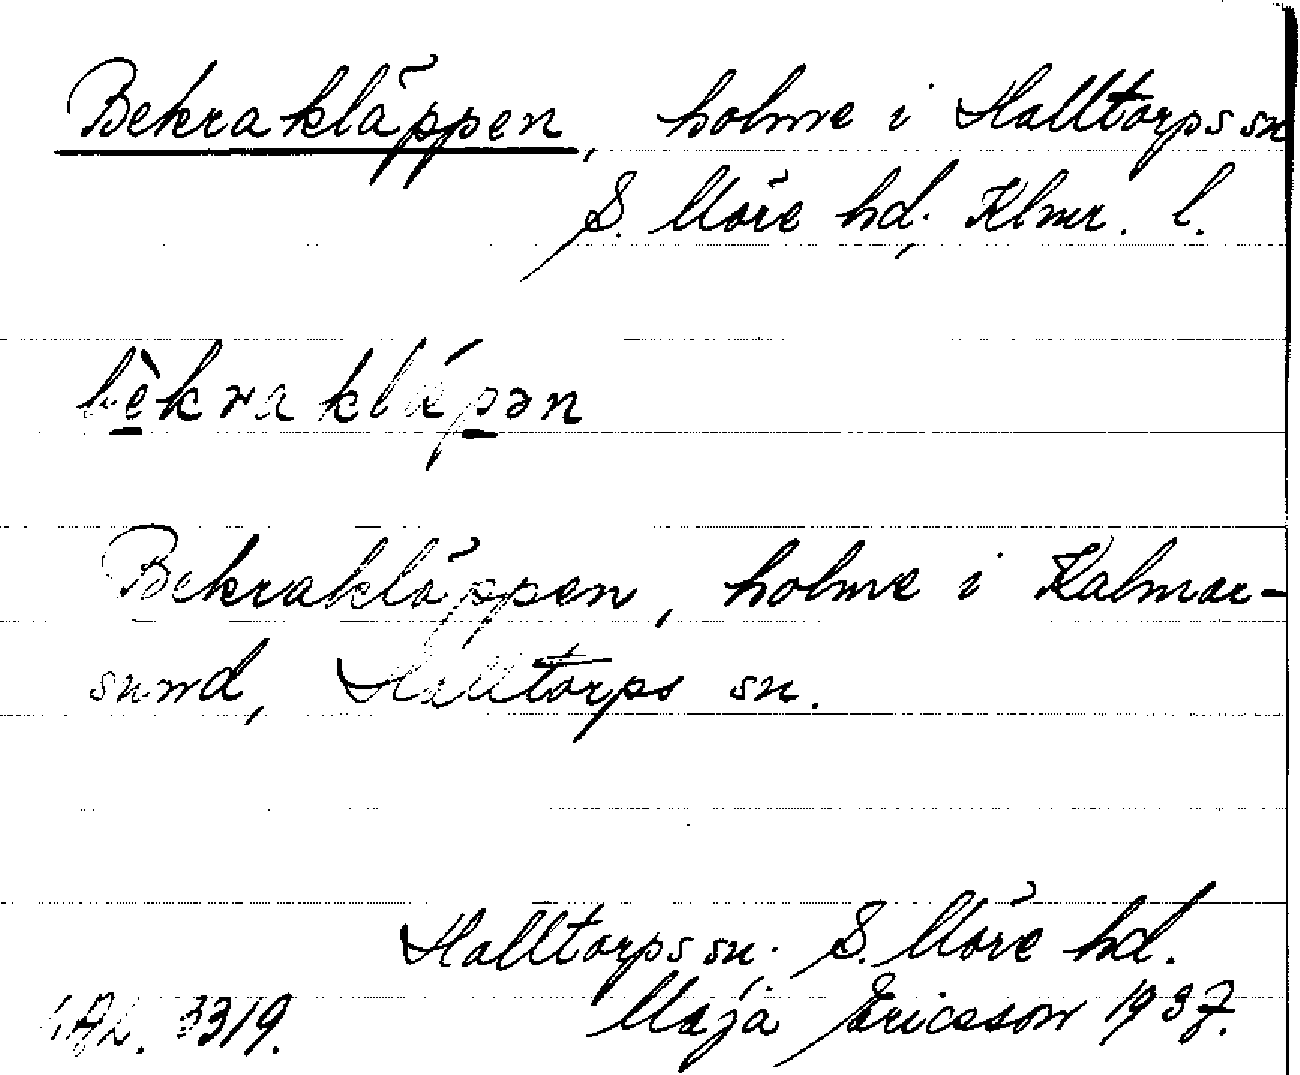 Bekrakläppen, holme i Halltorps sn
S. Möre hd, Klmr. l.
bèkrakláepən
Bekrakläppen, holme i Kalmar-
sund, Halltorps sn.
Halltorps sn. S. Möre hd.
3319. Maja Ericsson 1937.